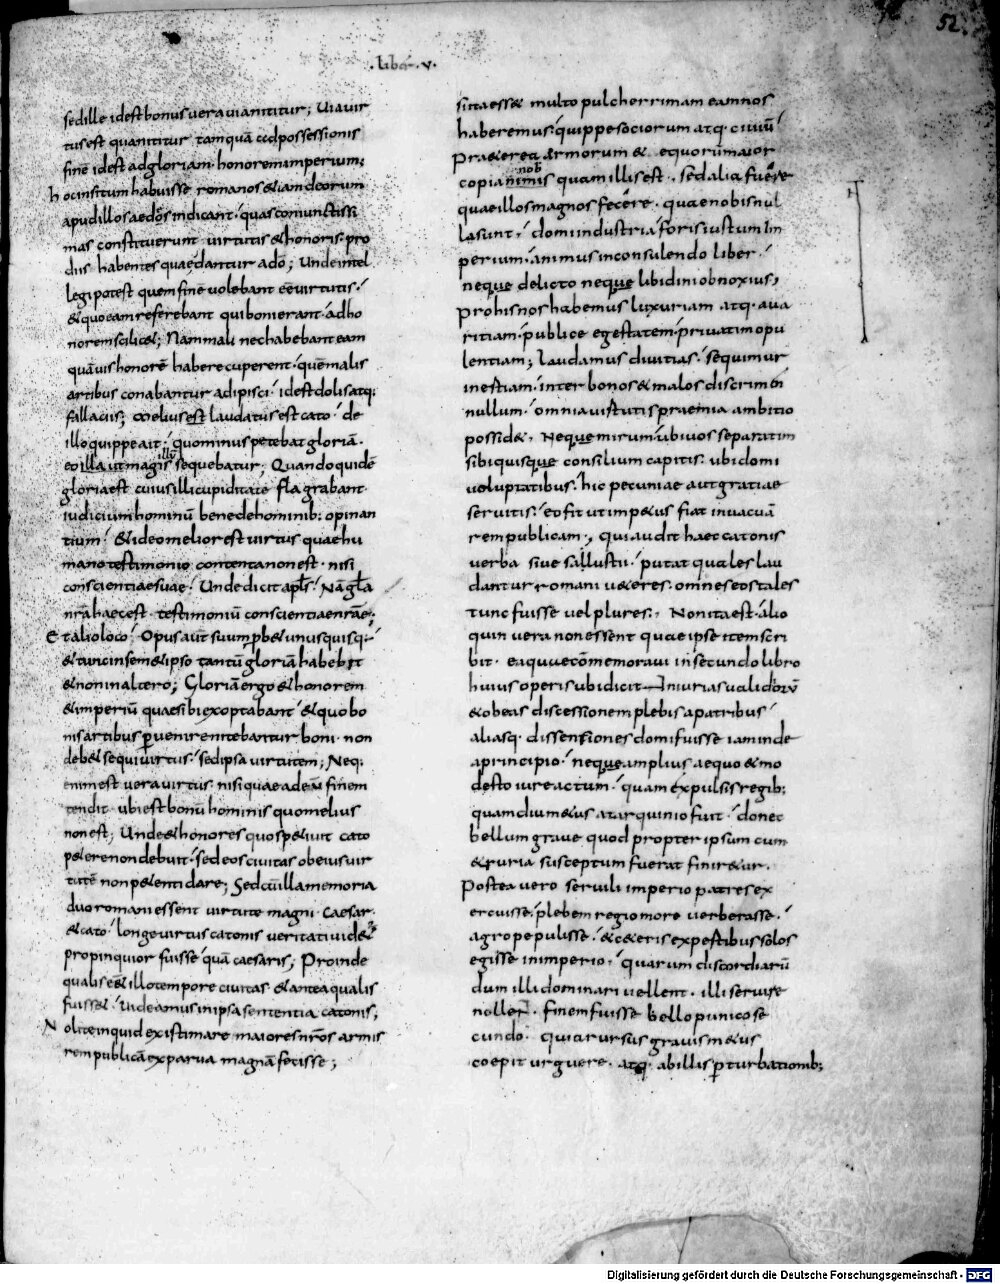 52.
. liber . v .
sed ille id est bonus vera via nititur; Via vir
tus est qua nititur tamquā ad possessionis
finē id est ad gloriam . honorem imperium;
hoc insitum habuisse romanos etiam deorum
apud illos aedes indicant . quas coniunctissi
mas constituerunt virtutis & honoris . pro
diis habentes quae dantur a dō; Unde intel
legi potest quem finē volebant eē virtutis .
& quo eam referebant qui boni erant . ad ho
norem scilic&; Nam mali nec habebant eam
quāvis honorē habere cuperent . quē malis
artibus conabantur adipisci . id est dolis atq;
fallaciis; Melius est laudatus est cato . de
illo quippe ait; quo minus petebat gloriā .
eo illa ut magis sequebatur; Quandoquidē
illū
gloria est cuius illi cupiditate flagrabant
iudicium hominū bene de hominib; opinan
tium . & ideo melior est virtus quae hu
mano testimonio contenta non est . nisi
conscientiae suae . Unde dicit apls . Nā gła
nra haec est . testimoniū conscientiae nrae;
Et alio loco; Opus aut suum pb& unusquisq;
& tunc in sem&ipso tantū gloriā habebit
& non in altero; Gloriā ergo & honorem
& imperiū quae sibi exoptabant & quo bo
nis artibus pervenire nitebantur boni . non
deb& sequi virtus . sed ipsa virtutem; Neq;
enim est vera virtus . nisi quae ad eū finem
tendit . ubi est bonū hominis quo melius
non est; Unde & honores quos petivit cato
petere non debuit . sed eos civitas ob eius vir
tutē non petenti dare; Sed cū illa memoria
duo romani essent virtute magni . Caesar
& cato . longe virtus catonis veritati vid&r
propinquior fuisse quā caesaris; Proinde
qualis eēt illo tempore civitas & antea qualis
fuiss& . videamus in ipsa sententia catonis;
Nolite inquid existimare maiores nros armis
rempublicā ex parva magnā fecisse;
si ita ess& multo pulcherrimam eam nos
haberemus quippe sociorum atq . civiū
Praeterea armorum & equorū maior
nob
copia nimis quam illis est . sed alia fuere
quae illos magnos fecere . quae nobis nul
la sunt . domi industria foris iustum im
perium . animus in consulendo liber .
neque delicto neque libidini obnoxius;
Pro his nos habemus luxuriam atq . ava
ritiam . publice egestatem . privatim opu
lentiam; laudamus divitias . sequimur
inertiam . inter bonos & malos discrimen
nullum . omnia virtutis praemia ambitio
possid& . Neque mirum . ubi vos separatim
sibi quisque consilium capitis . ubi domi
voluptatibus . hic pecuniae aut gratiae
servitis . eo fit ut impetus fiat in vacuā
rempublicam . Qui audit haec catonis
verba sive sallustii . putat quales lau
dantur romani veteres . omnes eos tales
tunc fuisse vel plures . Non ita est . alio
quin vera non essent quae ipse item scri
bit . ea quae cōmemoravi in secundo libro
huius operis ubi dicit . Iniurias validiorū
& ob eas discessionem plebis a patribus .
aliasq . dissensiones domi fuisse iam inde
a principio . neque amplius aequo & mo
desto iure actum . quam expulsis regib;
quamdiu metus a tarquinio fuit . donec
bellum grave quod propter ipsum cum
&ruria susceptum fuerat finir&ur .
Postea vero servili imperio patres ex
ercuisse . plebem regio more verberasse .
agro pepulisse . & ceteris expertibus solos
egisse in imperio . quarum discordiarū
dum illi dominari vellent . illi servire
nollent . finem fuisse bello punico se
cundo . quia rursus gravis metus
coepit urguere . atq . ab illis perturbationib;
Digitalisierung gefördert durch die Deutsche Forschungsgemeinschaft - DFG